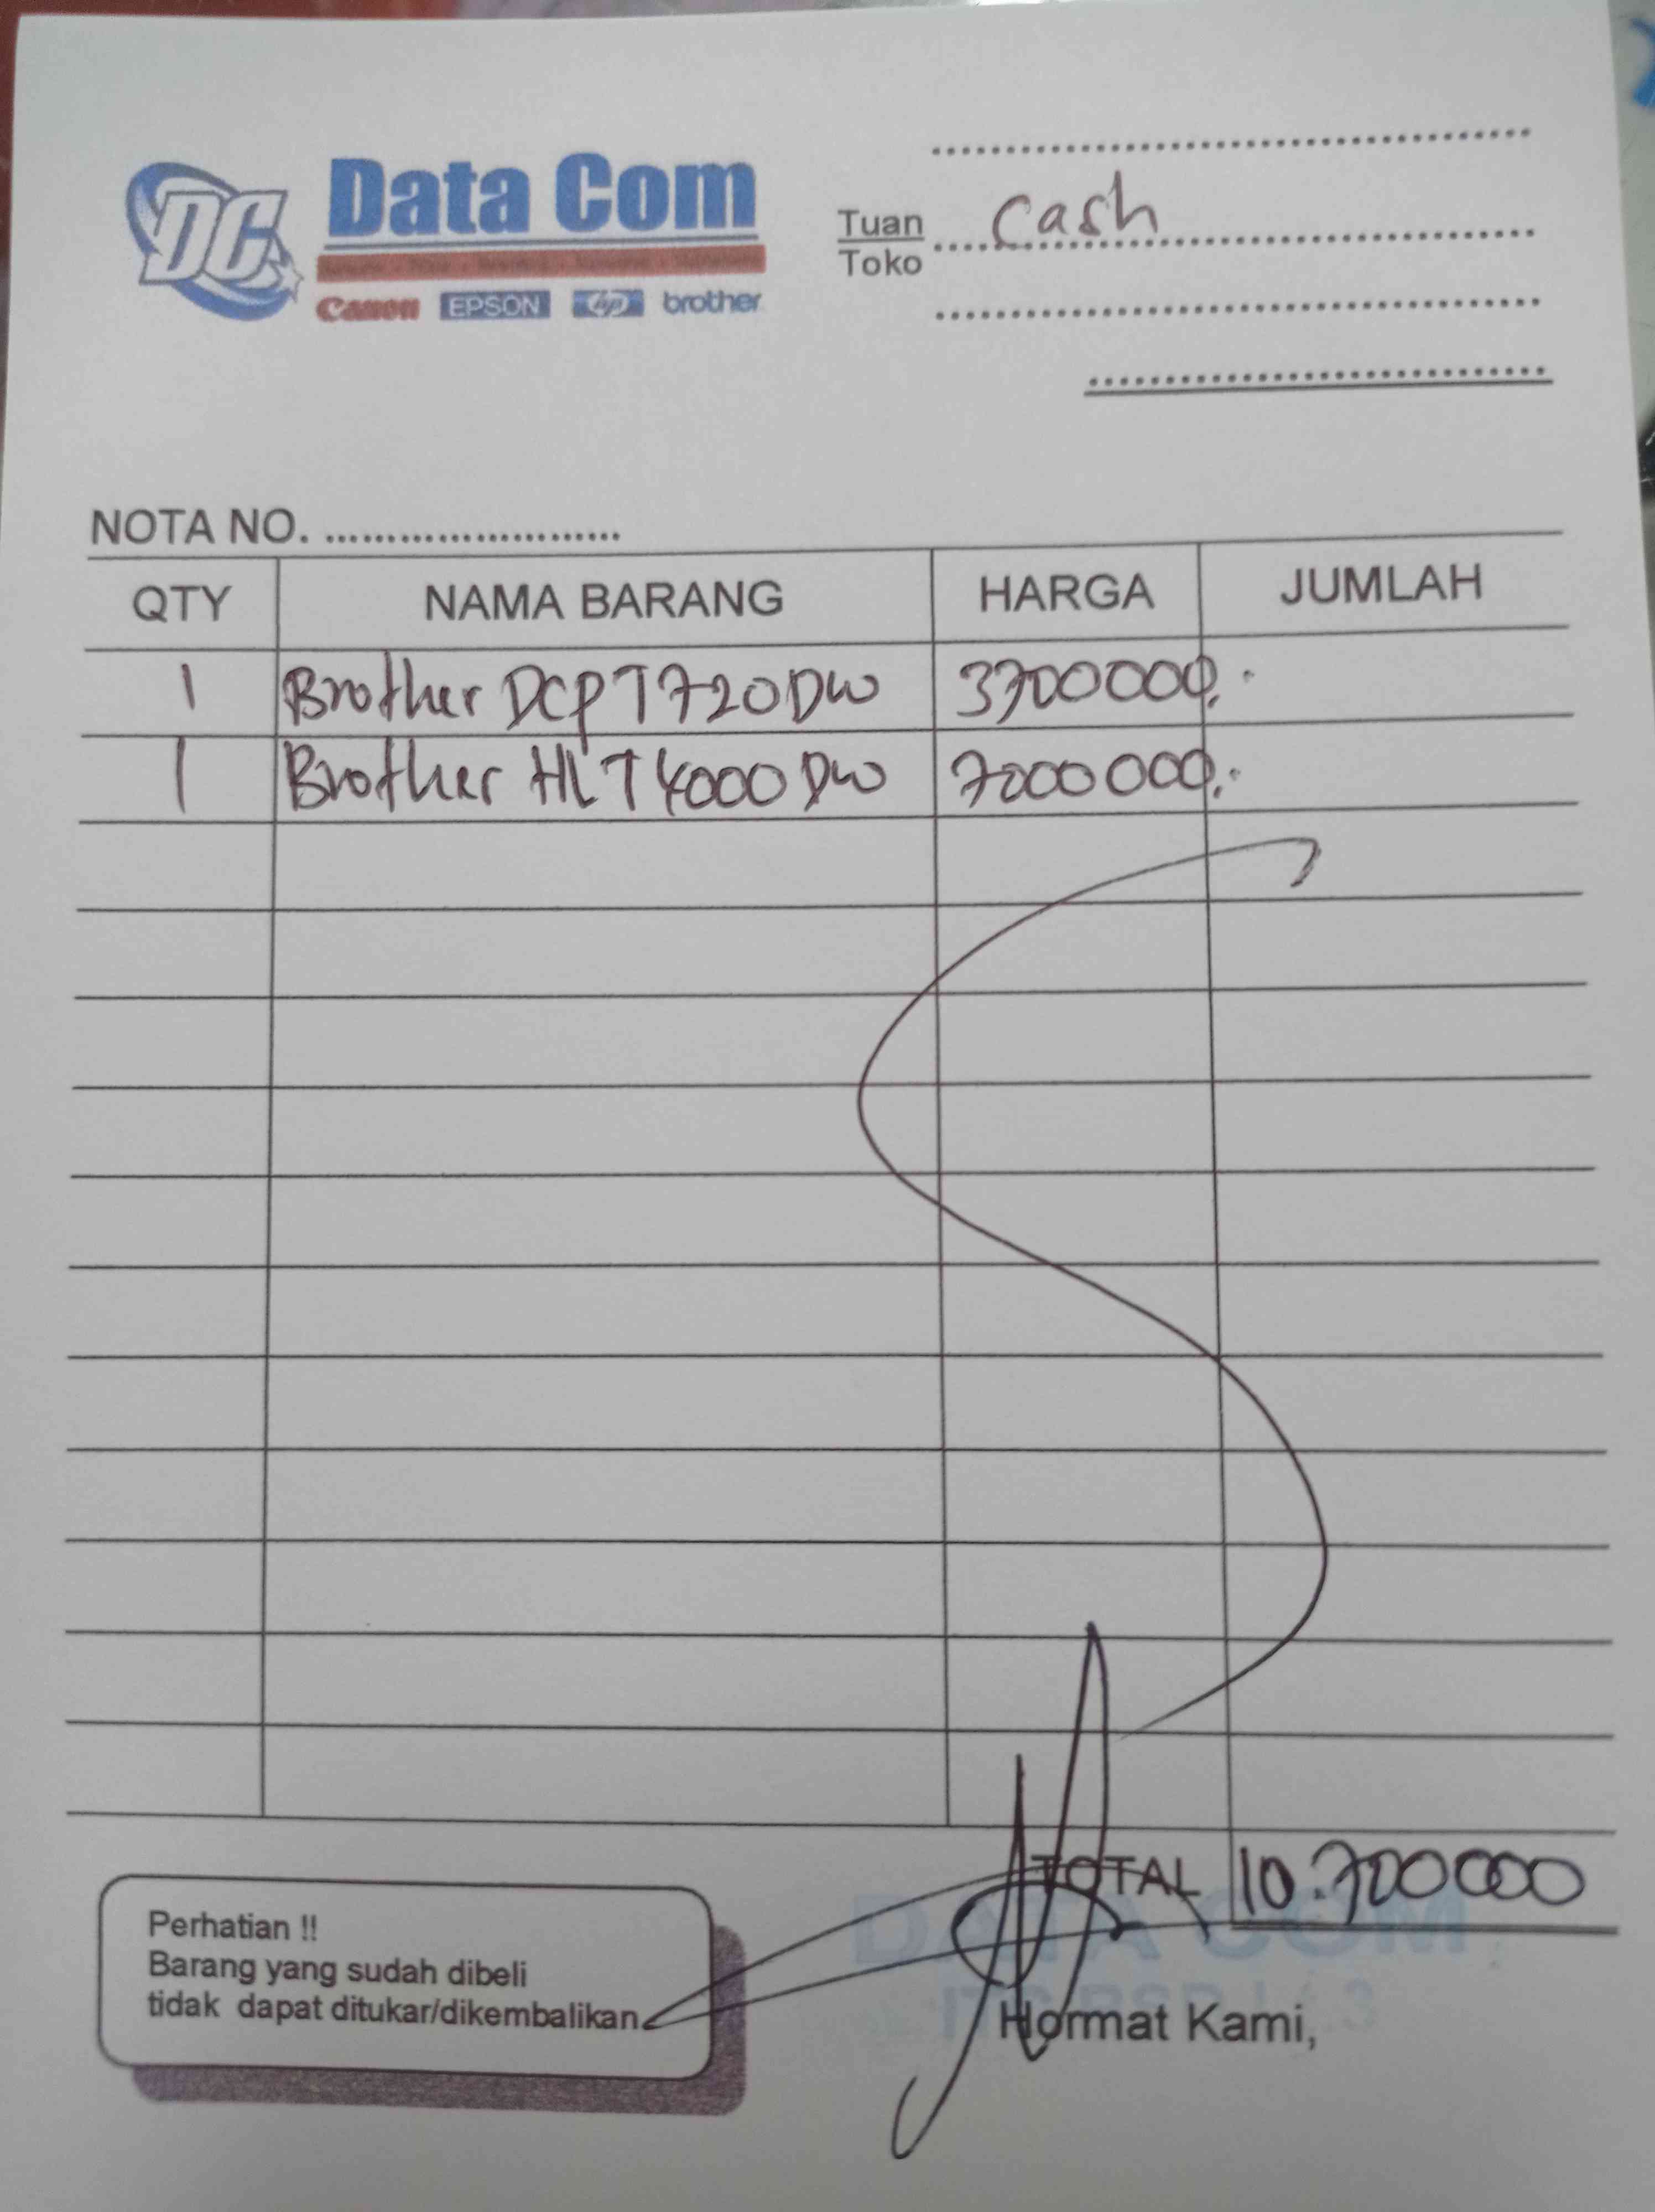 DC Data Com
Canon EPSON hp brother
Tuan Cash
Toko
NOTA NO. ........................
QTY NAMA BARANG HARGA JUMLAH
1 Brother DCP T720DW 3700000,-
1 Brother HL T4000DW 7000000,-
TOTAL 10.700000
Perhatian !!
Barang yang sudah dibeli
tidak dapat ditukar/dikembalikan
DATA COM
Hormat Kami,